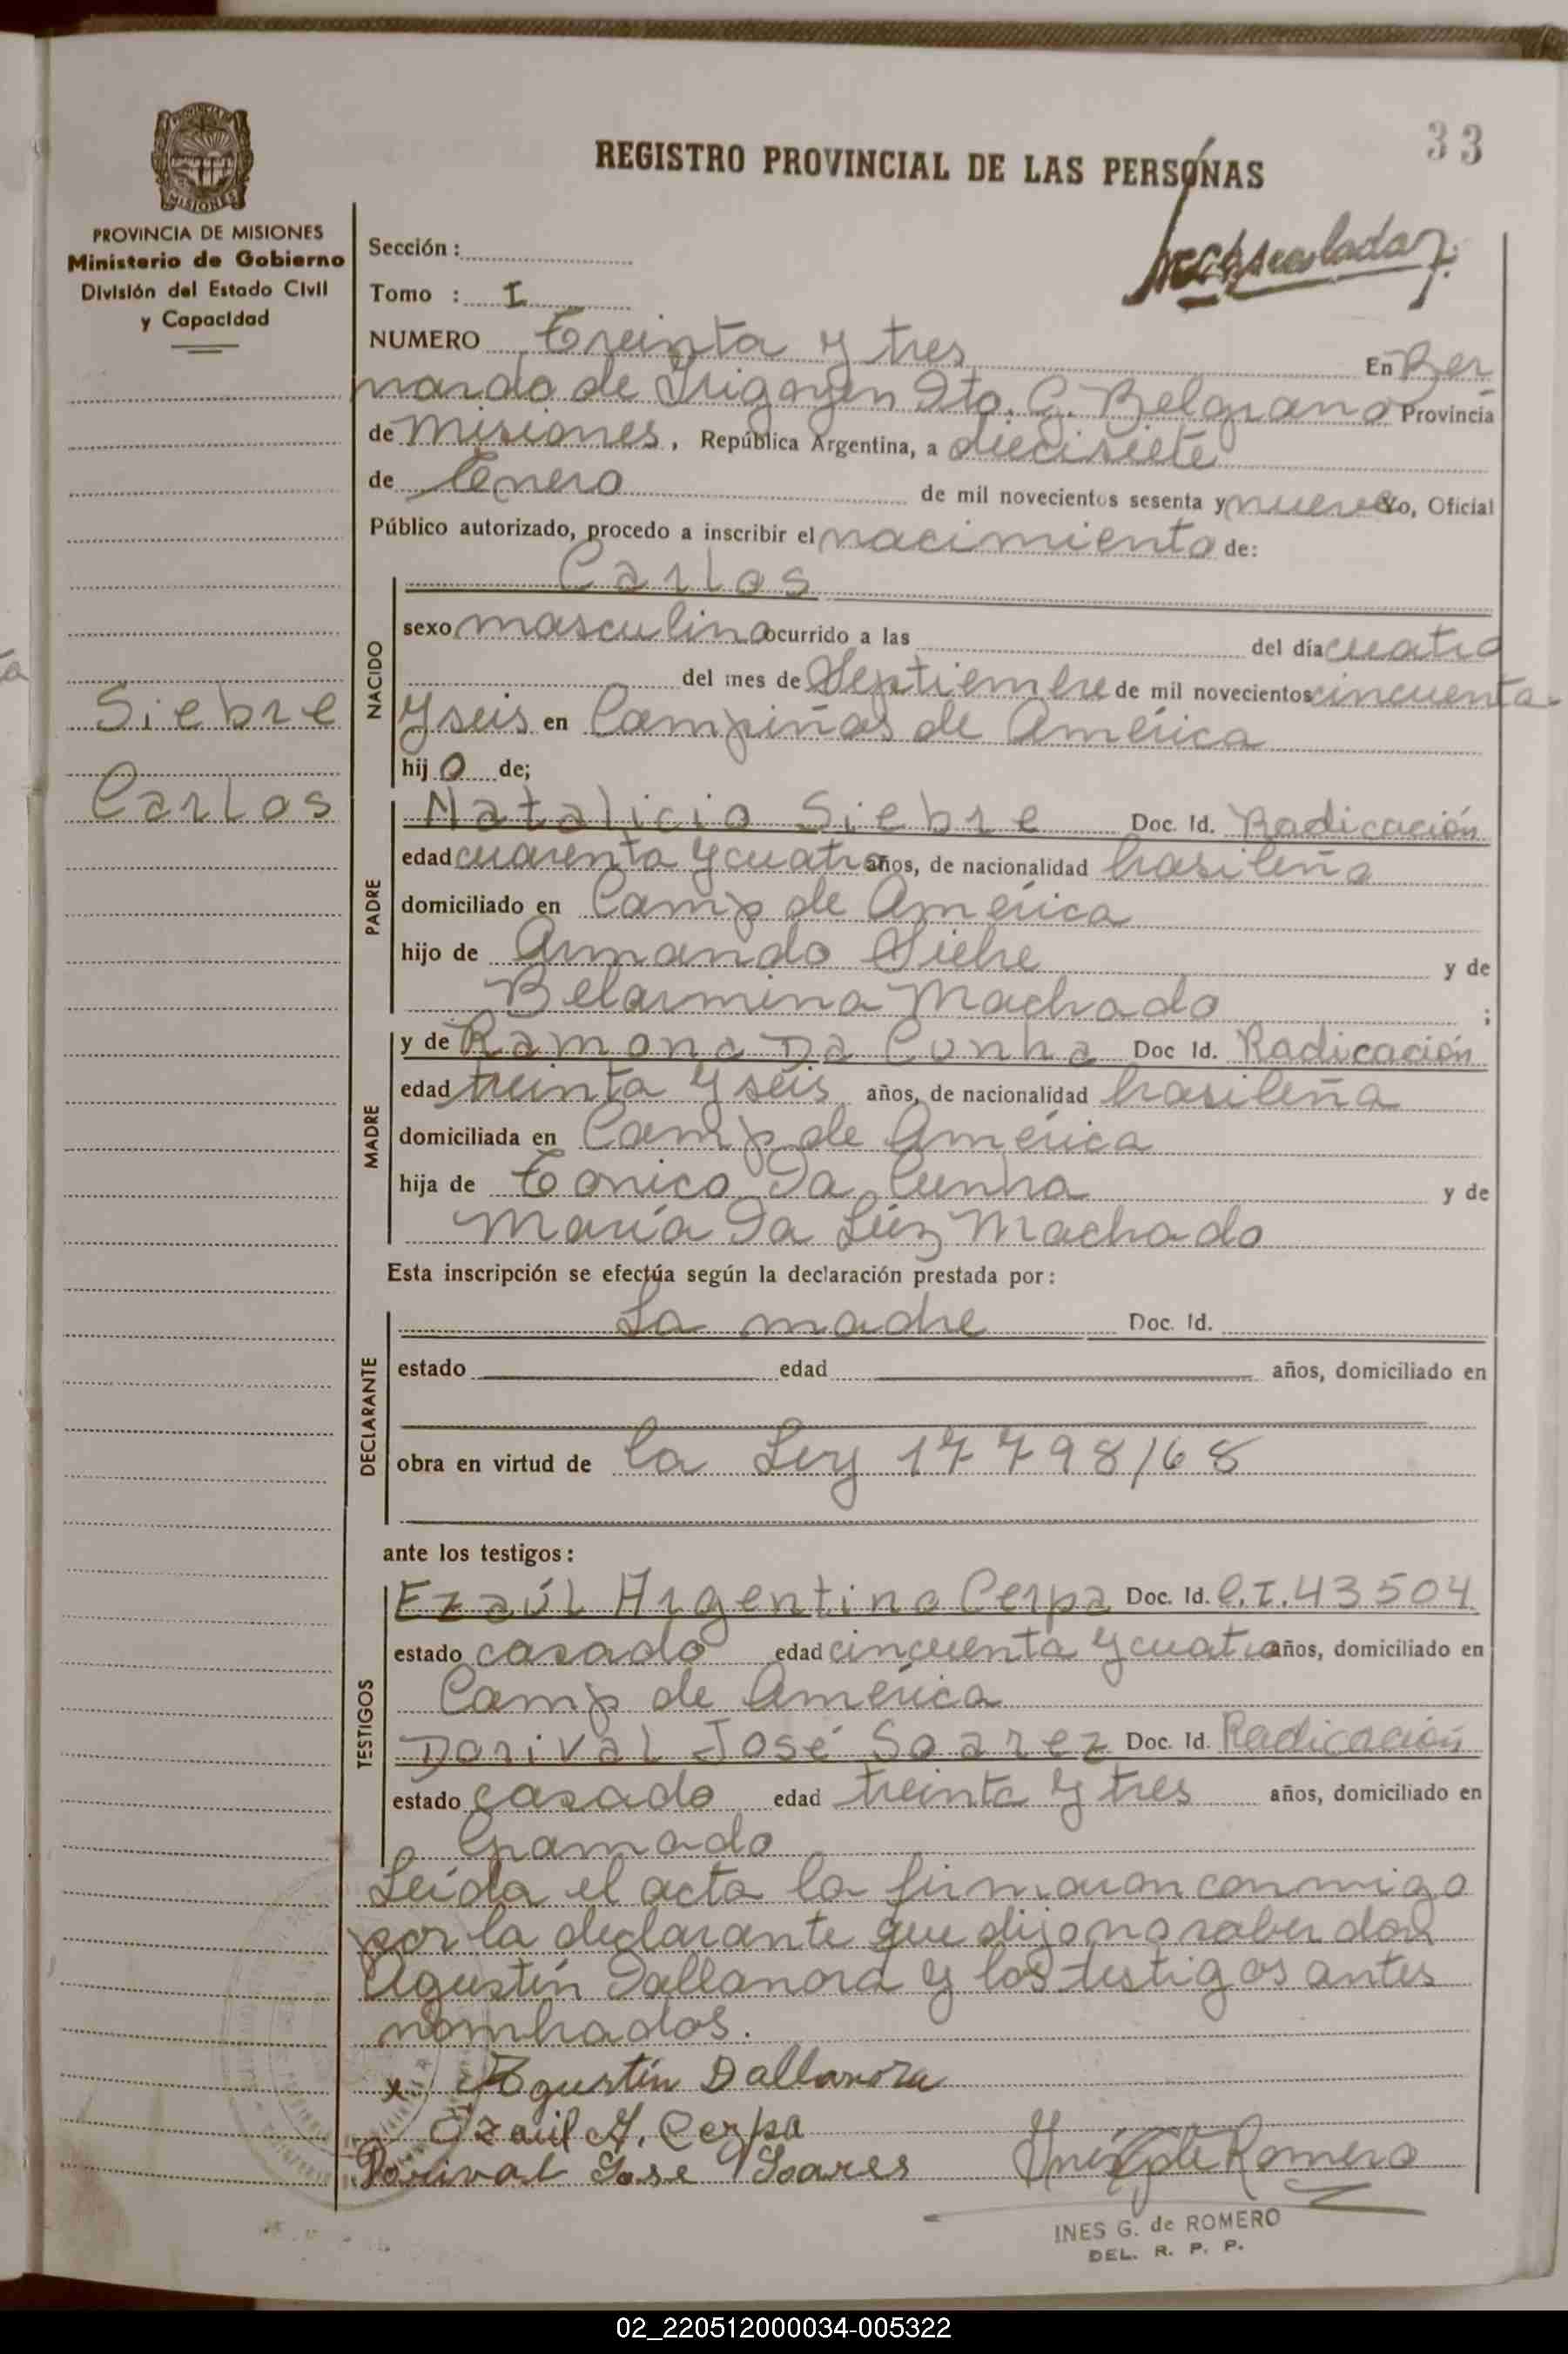 33
REGISTRO PROVINCIAL DE LAS PERSONAS
PROVINCIA DE MISIONES
Ministerio de Gobierno
División del Estado Civil
y Capacidad
Sección :
Tomo : I
NUMERO Treinta y tres En Ber
nardo de Irigoyen Dto. G. Belgrano Provincia
de Misiones, República Argentina, a diecisiete
de Enero de mil novecientos sesenta y nueve Yo, Oficial
Público autorizado, procedo a inscribir el nacimiento de:
Siebre
Carlos
NACIDO
Carlos
sexo masculino ocurrido a las del día cuatro
del mes de Septiembre de mil novecientos cincuenta
y seis en Campiñas de América
hijo de;
PADRE
Natalicio Siebre Doc. Id. Radicación
edad cuarenta y cuatro años, de nacionalidad brasileña
domiciliado en Camp de América
hijo de Armando Siebre y de
Belarmina Machado ;
MADRE
y de Ramona Da Cunha Doc Id. Radicación
edad treinta y seis años, de nacionalidad brasileña
domiciliada en Camp de América
hija de Tonico Da Cunha y de
María Da Lúz Machado
Esta inscripción se efectúa según la declaración prestada por:
DECLARANTE
La madre Doc. Id.
estado edad años, domiciliado en
obra en virtud de la Ley 17798/68
ante los testigos:
TESTIGOS
Ezaúl Argentino Cerpa Doc. Id. C.I. 43504
estado casado edad cincuenta y cuatro años, domiciliado en
Camp de América
Dorival José Soarez Doc. Id. Radicación
estado casado edad treinta y tres años, domiciliado en
Gramado
Leída el acta la firmaron conmigo
por la declarante que dijo no saber don
Agustín Dallanora y los testigos antes
nombrados.
x Agustín Dallanora
Ezaúl A. Cerpa
Dorival Jose Soares
Inés G de Romero
INES G. de ROMERO
DEL. R. P. P.
02_220512000034-005322